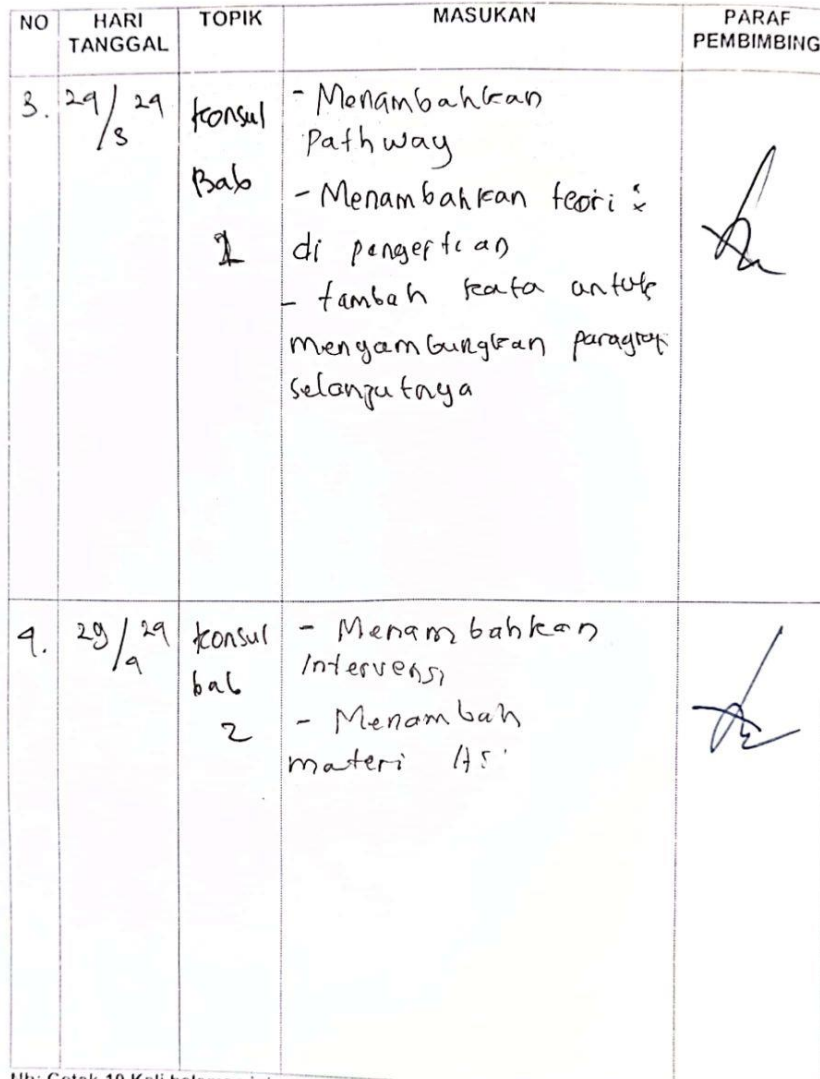 NO HARI TANGGAL TOPIK MASUKAN PARAF PEMBIMBING
3. 29/8 24 konsul Bab 1
- Menambahkan
Pathway
- Menambahkan teori :
di pengertian
- tambah kata untuk
menyambungkan paragraf
selanjutnya
4. 29/9 24 konsul bab 2
- Menambahkan
intervensi
- Menambah
materi
Nb: Cetak 10 Kali